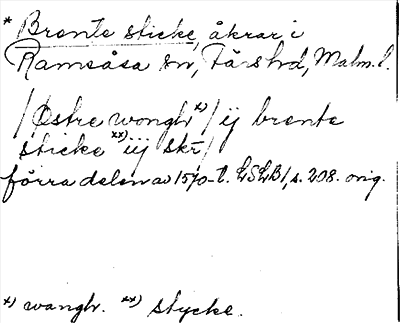 * Bronte sticke, åkrar i
Ramsåsa sn, Färs hd, Malm. l.
/Østre wonghr *)/ ij bronte
sticke **) iij skr/
förra delen av 1570-t. LSLB I, s. 208. orig.
*) wanghr. **) stycke.